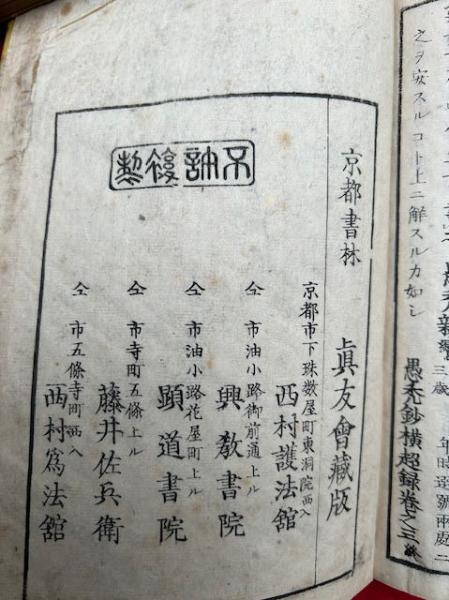 之ヲ安スルコト上ニ解スルカ如シ
愚禿鈔横超録巻之三終
京都書林 眞友會藏版
不許復製
京都市下珠数屋町東洞院西入
西村護法舘
仝 市油小路御前通上ル
興教書院
仝 市油小路花屋町上ル
顕道書院
仝 市寺町五條上ル
藤井佐兵衛
仝 市五條寺町西入
西村爲法舘